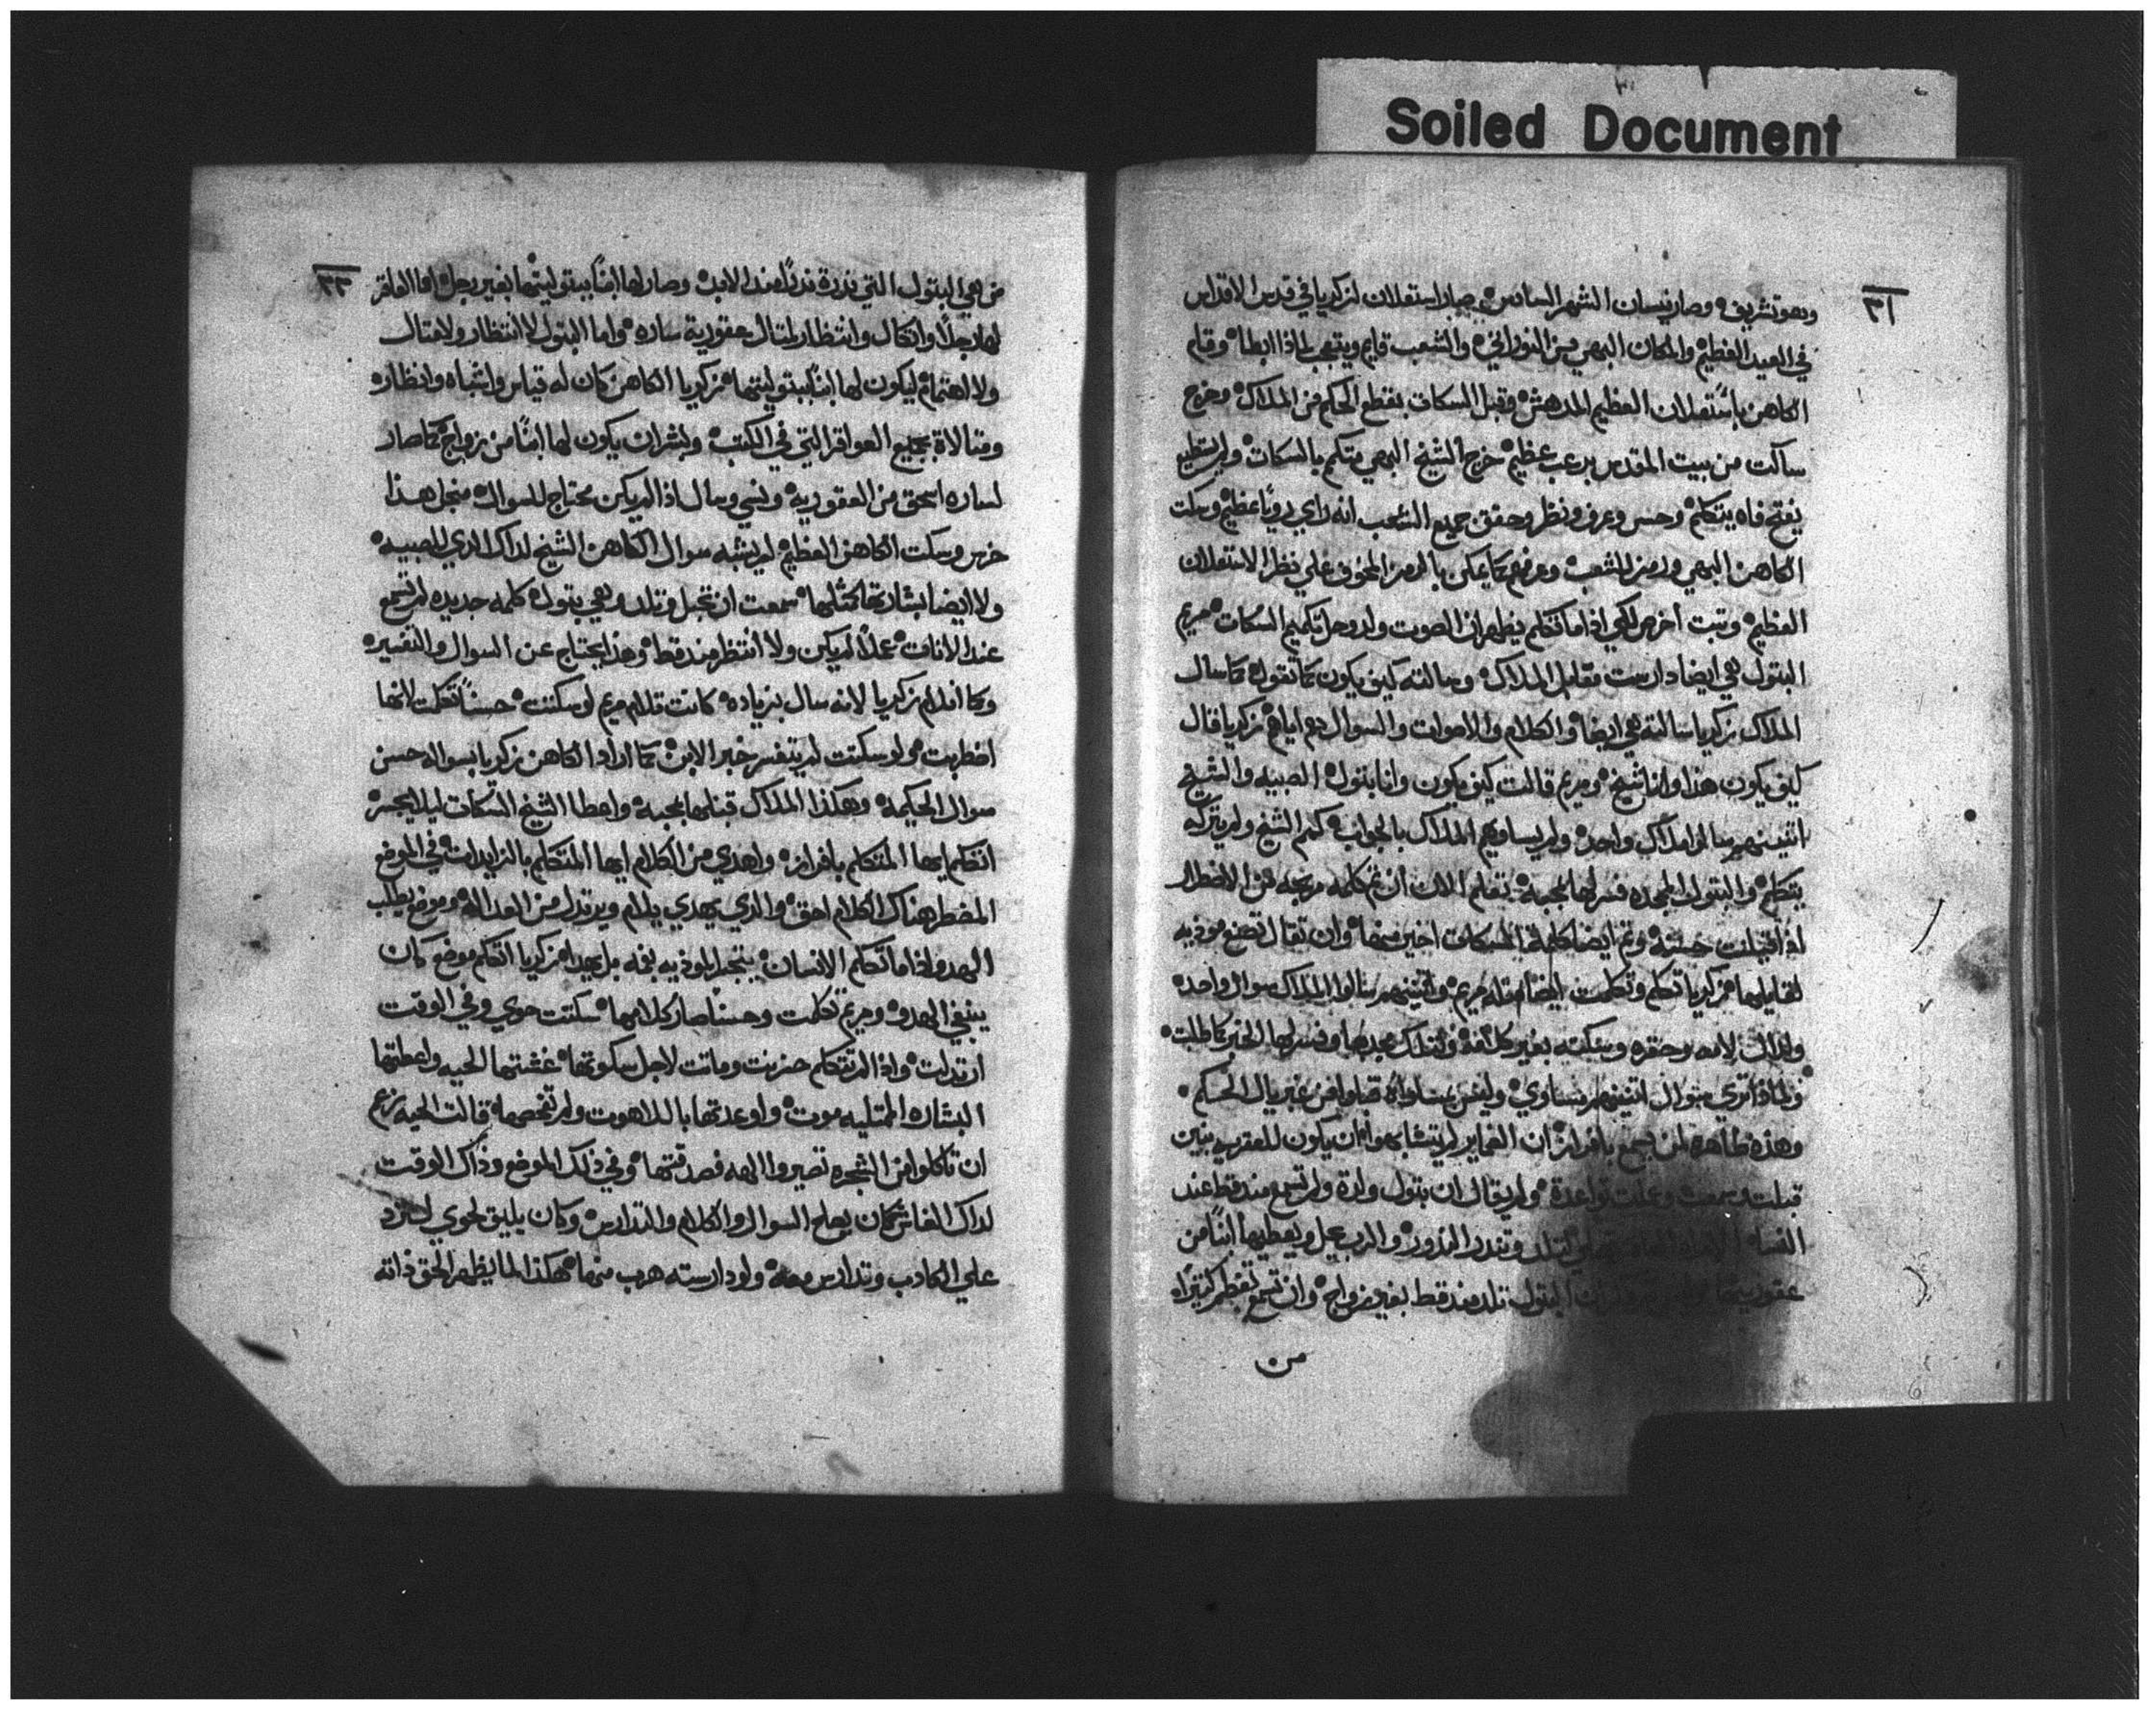 Soiled Document
٣١
وهو تشرين ۰ وصار نيسان الشهر السادس ۰ صار استعلان لزكريا في قدس الاقداس
في العيد العظيم ۰ والمكان البهي من النوراني ۰ والشعب قايم ويتعجب لماذا ابطا ۰ وقام
الكاهن باستعلان العظيم المدهش ۰ وقبل السكات بقطع الحكم من الملاك ۰ وخرج
ساكت من بيت المقدس برعب عظيم ۰ خرج الشيخ البهي متكم بالسكات ۰ ولم يستطيع
يفتح فاه يتكلم ۰ وحس وعرف ونظر وحقق جميع الشعب انه راي رويًا عظيم ۰ وسكت
الكاهن البهي ورمز للشعب ۰ وعرفهم كما يمكن بالرمز المخوف علي نظر الاستعلان
العظيم ۰ وتبت اخرص لكي اذا ما تكلم يظهر ان الصوت ولد وحل تكميم السكات ۰ مريم
البتول هي ايضا دارست مقابل الملاك ۰ وسالته كيف يكون كما تقول ۰ كما سال
الملاك زكريا سالته هي ايضا ۰ والكلام والاصوات والسوال دهم اياهم ۰ زكريا قال
كيف يكون هذا وانا شيخ ۰ ومريم قالت كيف يكون وانا بتول ۰ الصبيه والشيخ
اتنينهم سالوا ملاك واحد ۰ ولم يساويهم الملاك بالجواب ۰ كمم الشيخ ولم يتركه
يتكلم ۰ والبتول المجده فسر لها بمحبه ۰ تعلم الان ان تم كلمه مربحه من الاضطرار
اذا قيلت حسنه ۰ وتم ايضا كلمة السكات اخير منها ۰ وان تقال تصنع موذيه
لقايلها ۰ زكريا تكلم وتكلمت ايضا مثله مريم ۰ واتنينهم سالوا الملاك سوال واحد ۰
ولذاك لامه وحقره وسكته بغير كلمة ۰ ولتلك مجدها وفسر لها الخبر كما طلبت ۰
ولماذا تري سوال اتنينهم متساوي ۰ وليس بمساواة قضاوا من غبريال الحكم ۰
وهذه ظاهره لمن يسمع بافراز ۰ ان الضماير لم يتشابهوا ۰ ان يكون للعقرب بنين
قبلت وسمعت وعلت تواعدة ۰ ولم يقال ان بتول ولدة ولم تسمع منذ قط عند
لتلد وتندر الندور ۰ والرب عجل ويعطيها ابنًا من
البتول تلد منذ قط بغير زواج ۰ وان تسمع تعظم كتيرا ۰
من
٣٢
من هي البتول التي ندرة ندرًا عند الابن ۰ وصار لها ابنًا ببتوليتها بغير رجل ۰ اما العاقر
لها رجلاً واتكال وانتظار لمتال عقورية ساره ۰ واما البتول لا انتظار ولا متال
ولا اهتمام ليكون لها ابنًا ببتوليتها ۰ زكريا الكاهن كان له قياس واشباه وانظاره
ومتالاة بجميع العواقر التي في الكتب ۰ وبشر ان يكون لها ابنًا من زواج ۰ كما صار
لساره اسحق من العقورية ۰ ونسي وسال اذ لم يكن محتاج للسوال ۰ منجل هذا
خرس وسكت الكاهن العظيم ۰ لم يشبه سوال الكاهن الشيخ لداك الدي للصبيه ۰
ولا ايضا بشارتها كمثلها ۰ سمعت ان تحبل وتلد وهي بتول ۰ كلمه جديده لم تسمع
عند الانات ۰ عملاً لم يكن ولا انتظر منذ قط ۰ وهذا يحتاج عن السوال والتفسيره
وكما انلام زكريا لانه سال بزياده ۰ كانت تلام مريم لو سكتت ۰ حسنًا تكلمت لانها
اضطربت ۰ ولو سكتت لم يتفسر خبر الابن ۰ كما اراد الكاهن زكريا بسواله حسن
سوال الحكيمه ۰ وهكذا الملاك قبلها بمحبه ۰ واعطا الشيخ السكات ليلا يجسر ۰
اتكلم ايها المتكلم بافراز ۰ واهدي من الكلام ايها المتكلم بالزايدات ۰ في الموضع
المضطر هناك الكلام احق ۰ والدي يهدي يلام ويرتدل من العداله ۰ وموضع يطلب
الهدو اذا ما تكلم الانسان ۰ يتجد الموذيه بفمه ۰ لم يهدا زكريا اتكلم موضع كان
ينبغي الهدو ۰ ومريم تكلمت وحسنًا صار كلامها ۰ سكتت حوي وفي الوقت
ارتدلت ۰ واذ لم تتكلم حزنت وماتت لاجل سكوتها ۰ غشتها الحيه واعطتها
البشاره الممتليه موت ۰ واوعدتها باللاهوت ولم تفحصها ۰ قالت الحيه نزعم
ان تاكلوا من الشجره تصيروا الهه فصدقتها ۰ وفي ذلك الموضع وذاك الوقت
لداك الغاش كان يصلح السوال والكلام والتدارس ۰ وكان يليق لحوي لتترد
علي الكادب وتدارس معه ۰ ولو دارسته هرب منها ۰ هكذا لما يظهر الحق ذاته